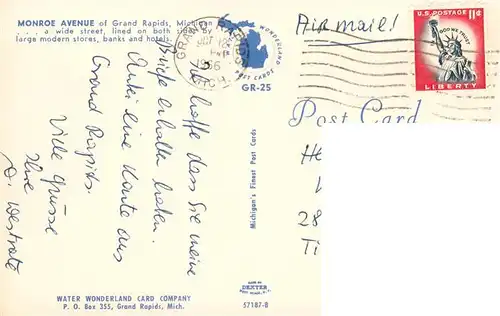 MONROE AVENUE of Grand Rapids, Michigan
... a wide street, lined on both sides by
large modern stores, banks and hotels.
GRAND RAPIDS
1966
MICH.
WATER WONDERLAND
POST CARDS
GR-25
Airmail!
U.S. POSTAGE 11¢
IN GOD WE TRUST
LIBERTY
Post Card
Ich hoffe dass Sie meine
Briefe erhalten haben.
Anbei eine Karte aus
Grand Rapids.
Viele Grüsse
Ihre
D. Westrate
Michigan's Finest Post Cards
28
Ti
MADE BY
DEXTER
WEST NYACK, N.Y.
WATER WONDERLAND CARD COMPANY
P. O. Box 355, Grand Rapids, Mich.
57187-B